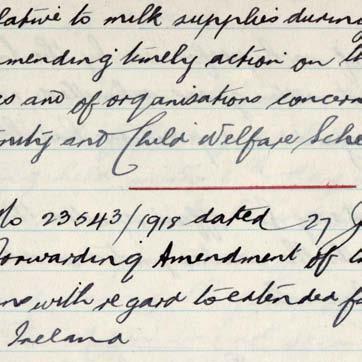 lative to milk supplies during
mmending timely action on th
es and of organisations concern
nity and Child Welfare Sche
No 23543/1918 dated 27 J
Forwarding Amendment of
ons with regard to extended f
Ireland